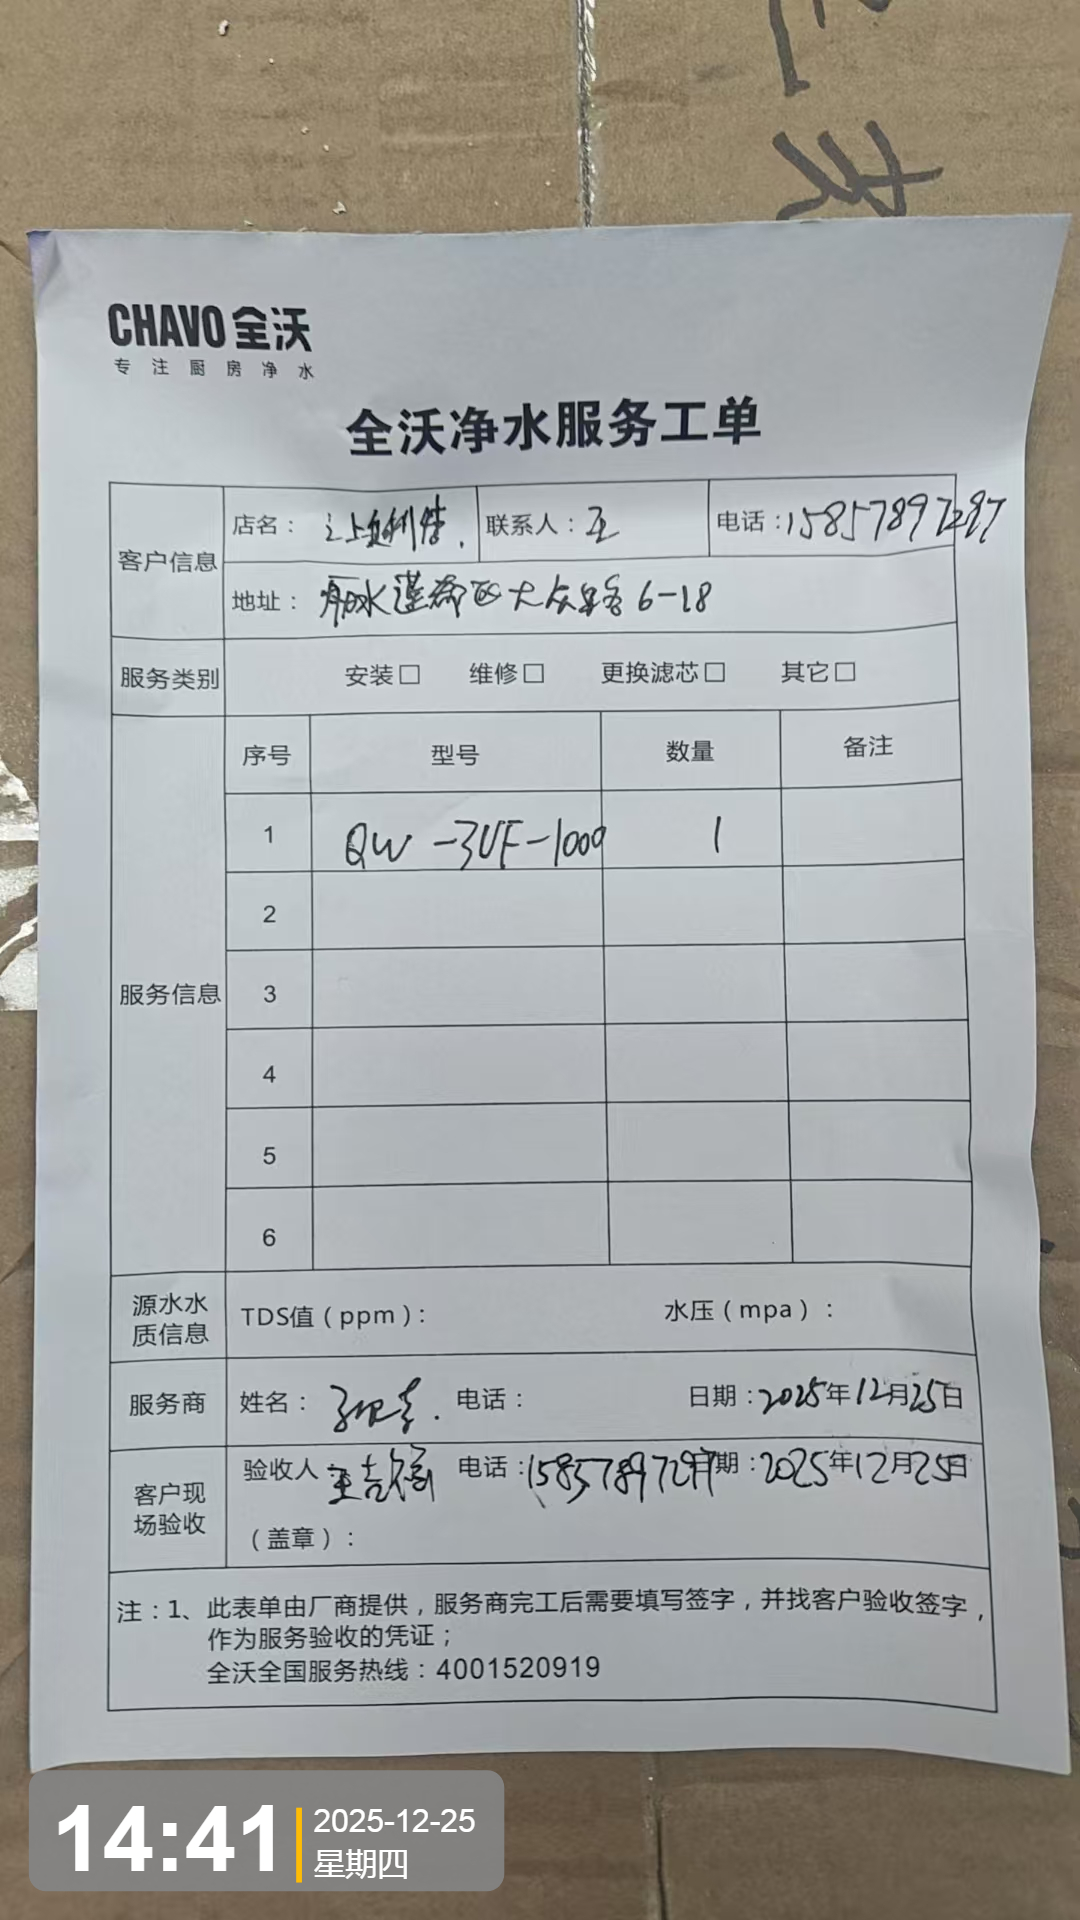 CHAVO 全沃
专注厨房净水
全沃净水服务工单
客户信息
店名： 联系人：王 电话：15857897297
地址：丽水莲都区大众路6-18
服务类别 安装□ 维修□ 更换滤芯□ 其它□
服务信息
序号 型号 数量 备注
1 QW-3UF-1000 1
2
3
4
5
6
源水水质信息 TDS值（ppm）： 水压（mpa）：
服务商 姓名： 电话： 日期：2025年12月25日
客户现场验收
验收人 电话：15857897297 日期：2025年12月25日
（盖章）：
注：1、此表单由厂商提供，服务商完工后需要填写签字，并找客户验收签字，
作为服务验收的凭证；
全沃全国服务热线：4001520919
14:41
2025-12-25
星期四